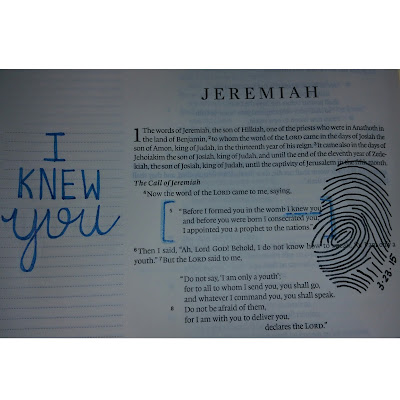 I
KNEW
you
JEREMIAH
1 The words of Jeremiah, the son of Hilkiah, one of the priests who were in Anathoth in
the land of Benjamin, 2 to whom the word of the LORD came in the days of Josiah the
son of Amon, king of Judah, in the thirteenth year of his reign. 3 It came also in the days of
Jehoiakim the son of Josiah, king of Judah, and until the end of the eleventh year of Zede-
kiah, the son of Josiah, king of Judah, until the captivity of Jerusalem in the fifth month.
The Call of Jeremiah
4 Now the word of the LORD came to me, saying,
5 "Before I formed you in the womb I knew you,
and before you were born I consecrated you;
I appointed you a prophet to the nations."
6 Then I said, "Ah, Lord GOD! Behold, I do not know how to speak, for I am only a
youth." 7 But the LORD said to me,
"Do not say, 'I am only a youth';
for to all to whom I send you, you shall go,
and whatever I command you, you shall speak.
8 Do not be afraid of them,
for I am with you to deliver you,
declares the LORD."
3·23·15